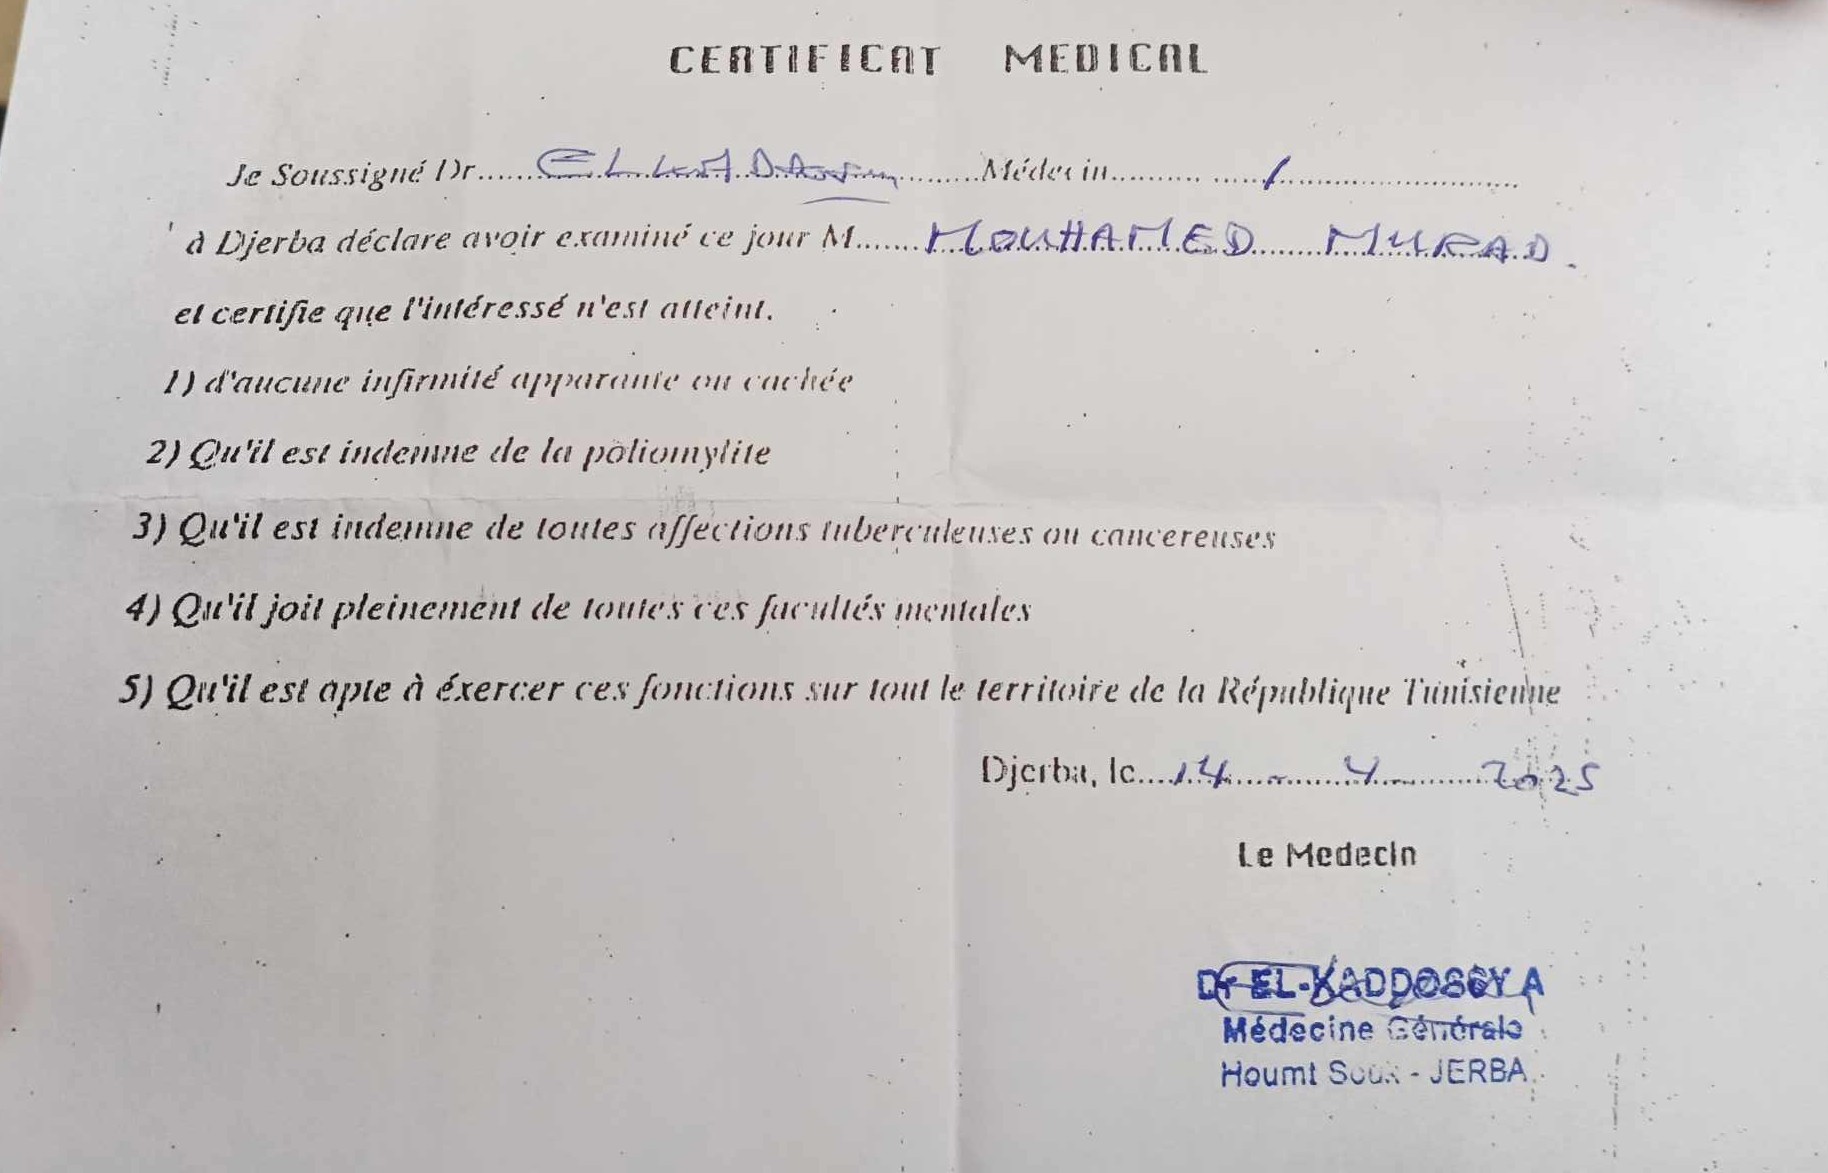 CERTIFICAT MEDICAL
Je Soussigné Dr...... EL ......... Médecin.......... ...... / ..............................
à Djerba déclare avoir examiné ce jour M....... MOUHAMED MURAD.
et certifie que l'intéressé n'est atteint.
1) d'aucune infirmité apparante ou cachée
2) Qu'il est indemne de la poliomylite
3) Qu'il est indemne de toutes affections tuberculeuses ou cancereuses
4) Qu'il joit pleinement de toutes ces facultés mentales
5) Qu'il est apte à éxercer ces fonctions sur tout le territoire de la République Tunisienne
Djerba, le.... 14 - 4 - 2025
Le Medecin
Dr EL-KADDOSSY A
Médecine Générale
Houmt Souk - JERBA